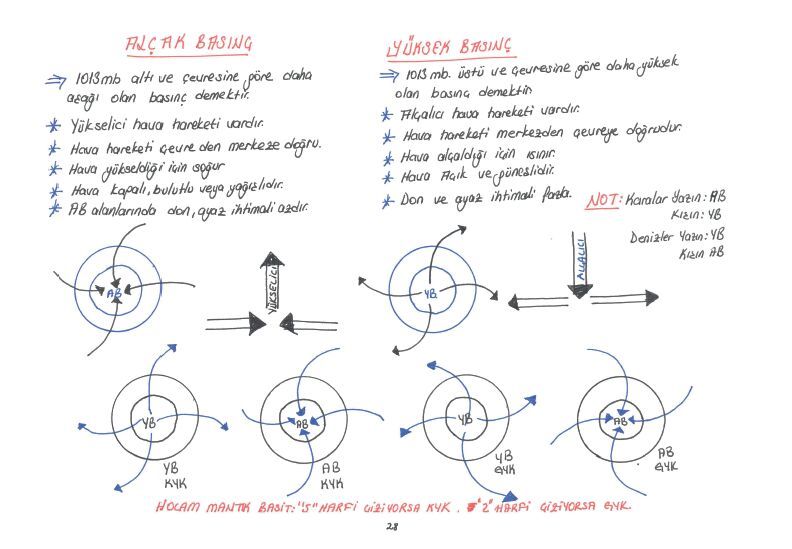 ALÇAK BASINÇ
⇒ 1013mb altı ve çevresine göre daha
aşağı olan basınç demektir.
* Yükselici hava hareketi vardır.
* Hava hareketi çevreden merkeze doğru.
* Hava yükseldiği için soğur
* Hava kapalı, bulutlu veya yağışlıdır.
* AB alanlarında don, ayaz ihtimali azdır.
YÜKSEK BASINÇ
⇒ 1013 mb. üstü ve çevresine göre daha yüksek
olan basınç demektir.
* Alçalıcı hava hareketi vardır.
* Hava hareketi merkezden çevreye doğrudur.
* Hava alçaldığı için ısınır.
* Hava Açık ve güneşlidir.
* Don ve ayaz ihtimali fazla.
NOT: Karalar Yazın: AB
Kışın: YB
Denizler Yazın: YB
Kışın AB
AB
YÜKSELİCİ
YB
ALÇALICI
YB
YB
KYK
AB
AB
KYK
YB
YB
GYK
AB
AB
GYK
HOCAM MANTIK BASİT: "S" HARFİ ÇİZİYORSA KYK, "2" HARFİ ÇİZİYORSA GYK.
28